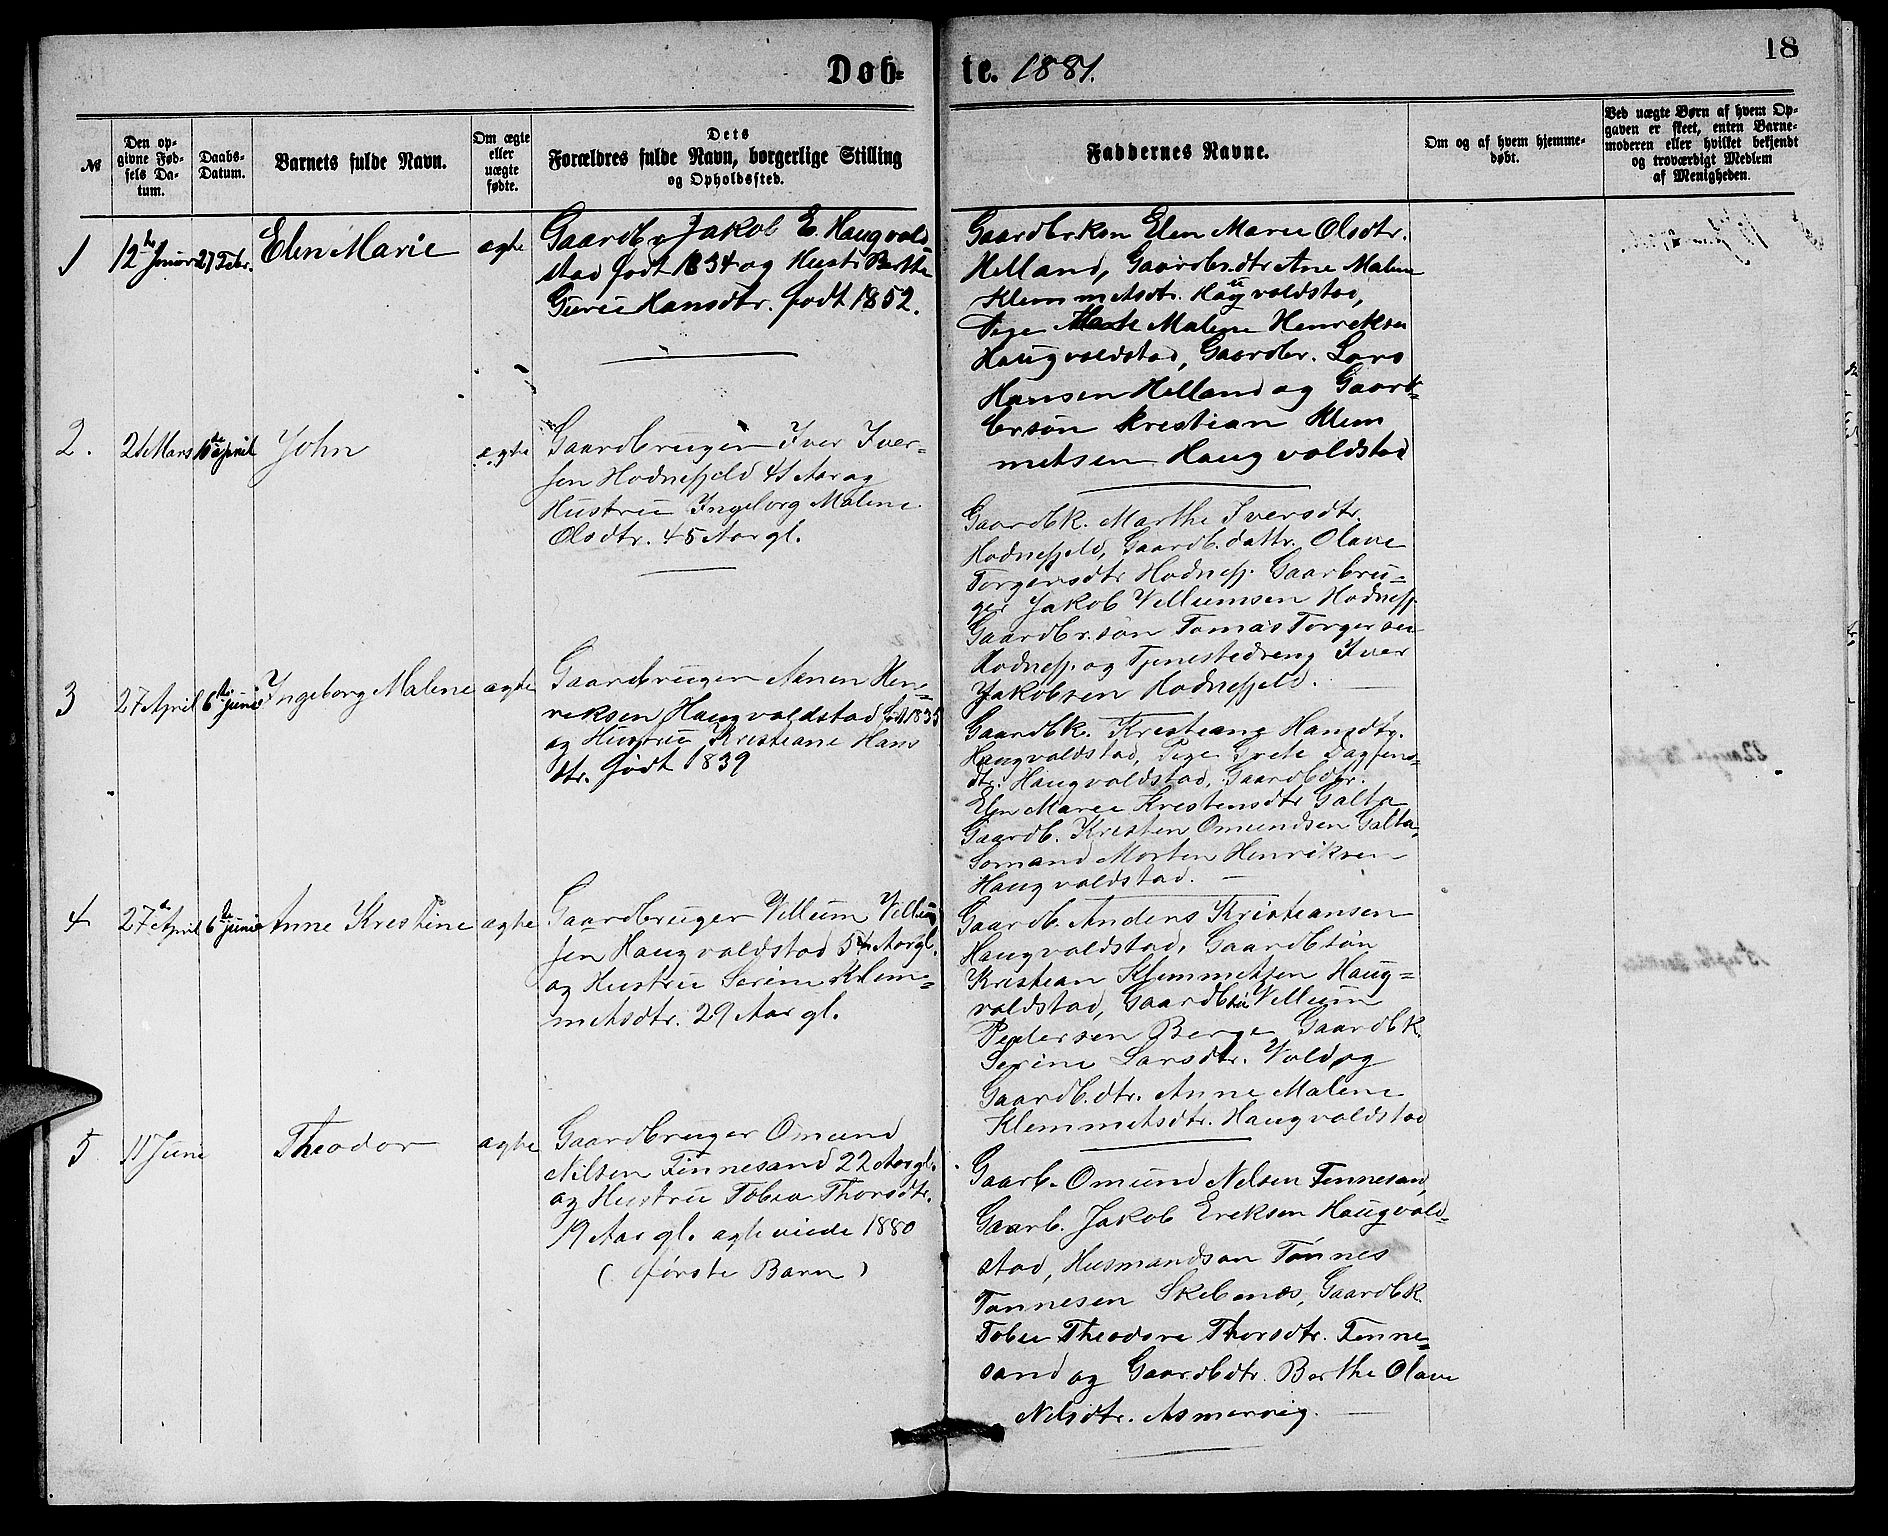 18
Døb-
te. 1881.
№
Den op-
givne Fød-
sels Da-
tum.
Daabs-
Datum.
Barnets fulde Navn.
Om ægte
eller
uægte
fødte.
Dets
Forældres fulde Navn, borgerlige Stilling
og Opholdssted.
Faddernes Navne.
Om og af hvem hjemme-
døbt.
Ved uægte Børn af hvem Op-
gaven er skeet, enten Barne-
moderen eller hvilket bekjendt
og troværdigt Medlem
af Menigheden.
1
12te Januar
27 Febr.
Elen Marie
ægte
Gaardbr Jakob E. Haugvald-
stad født 1834 og Hustr. Berthe
Gurie Hansdtr. født 1852.
Gaardbrkon Elen Marie Olsdtr.
Helland, Gaardbr.dtr Ane Malene
Klemmetsdtr. Haugvaldstad,
Pige Malene Henriksen
Haugvaldstad, Gaardbr. Lars
Hansen Helland og Gaard-
brsøn Kristian Klem
metsen Haugvaldstad
2.
21 Mars
18de april
John
ægte
Gaardbruger Iver Iver-
sen Hodnefjeld 41 Aar og
Hustru Ingeborg Malene
Olsdtr. 45 Aar gl.
Gaardbk. Marthe Iversdtr.
Hodnefjeld, Gaardb.dattr. Olave
Torgersdtr Hodnefj. Gaarbru-
ger Jakob Villumsen Hodnefj.
Gaardbr.søn Tomas Torgersen
Hodnefj. og Tjenestedreng Iver
Jakobsen Hodnefjeld.
3
27 April
6te juni
Ingeborg Malene
ægte
Gaardbruger Aanen Hen-
reksen Haugvaldstad født 1835
og Hustru Kristiane Hans
dtr. født 1839
Gaardbk. Kristiane Hansdtr.
Haugvaldstad, Pige Grete Dagfins-
dtr. Haugvaldstad, Gaardbdtr.
Elen Marie Kristensdtr Galta
Gaardb. Kristen Omundsen Galta,
Sømand Morten Henriksen
Haugvaldstad.
4
27de April
6te juni
Anne Kristine
ægte
Gaardbruger Villum Villum
sen Haugvaldstad 54 Aar gl.
og Hustru Serine Klem-
metsdtr. 29 Aar gl.
Gaardb. Anders Kristiansen
Haugvaldstad, Gaardbsøn
Kristian Klemmetsen Haug-
valdstad, Gaardbsøn Villum
Pedersen Berge, Gaardbk.
Serine Larsdtr. Vold og
Gaardb.dtr. Anne Malene
Klemmetsdtr. Haugvaldstad
5
11 Juni
Theodor
ægte
Gaardbruger Omund
Nilsen Finnesand 22 Aar gl.
og Hustru Tobia Thorsdtr.
19 Aar gl. egteviede 1880
(første Barn)
Gaarb. Omund Nelsen Finnesand,
Gaarb. Jakob Ereksen Haugvald-
stad, Husmandsøn Tønnes
Tønnesen Skebenes, Gaardbk.
Tobie Theodore Thorsdtr. Finne-
sand og Gaardbdtr. Berthe Olave
Nelsdtr. Asmarvig.